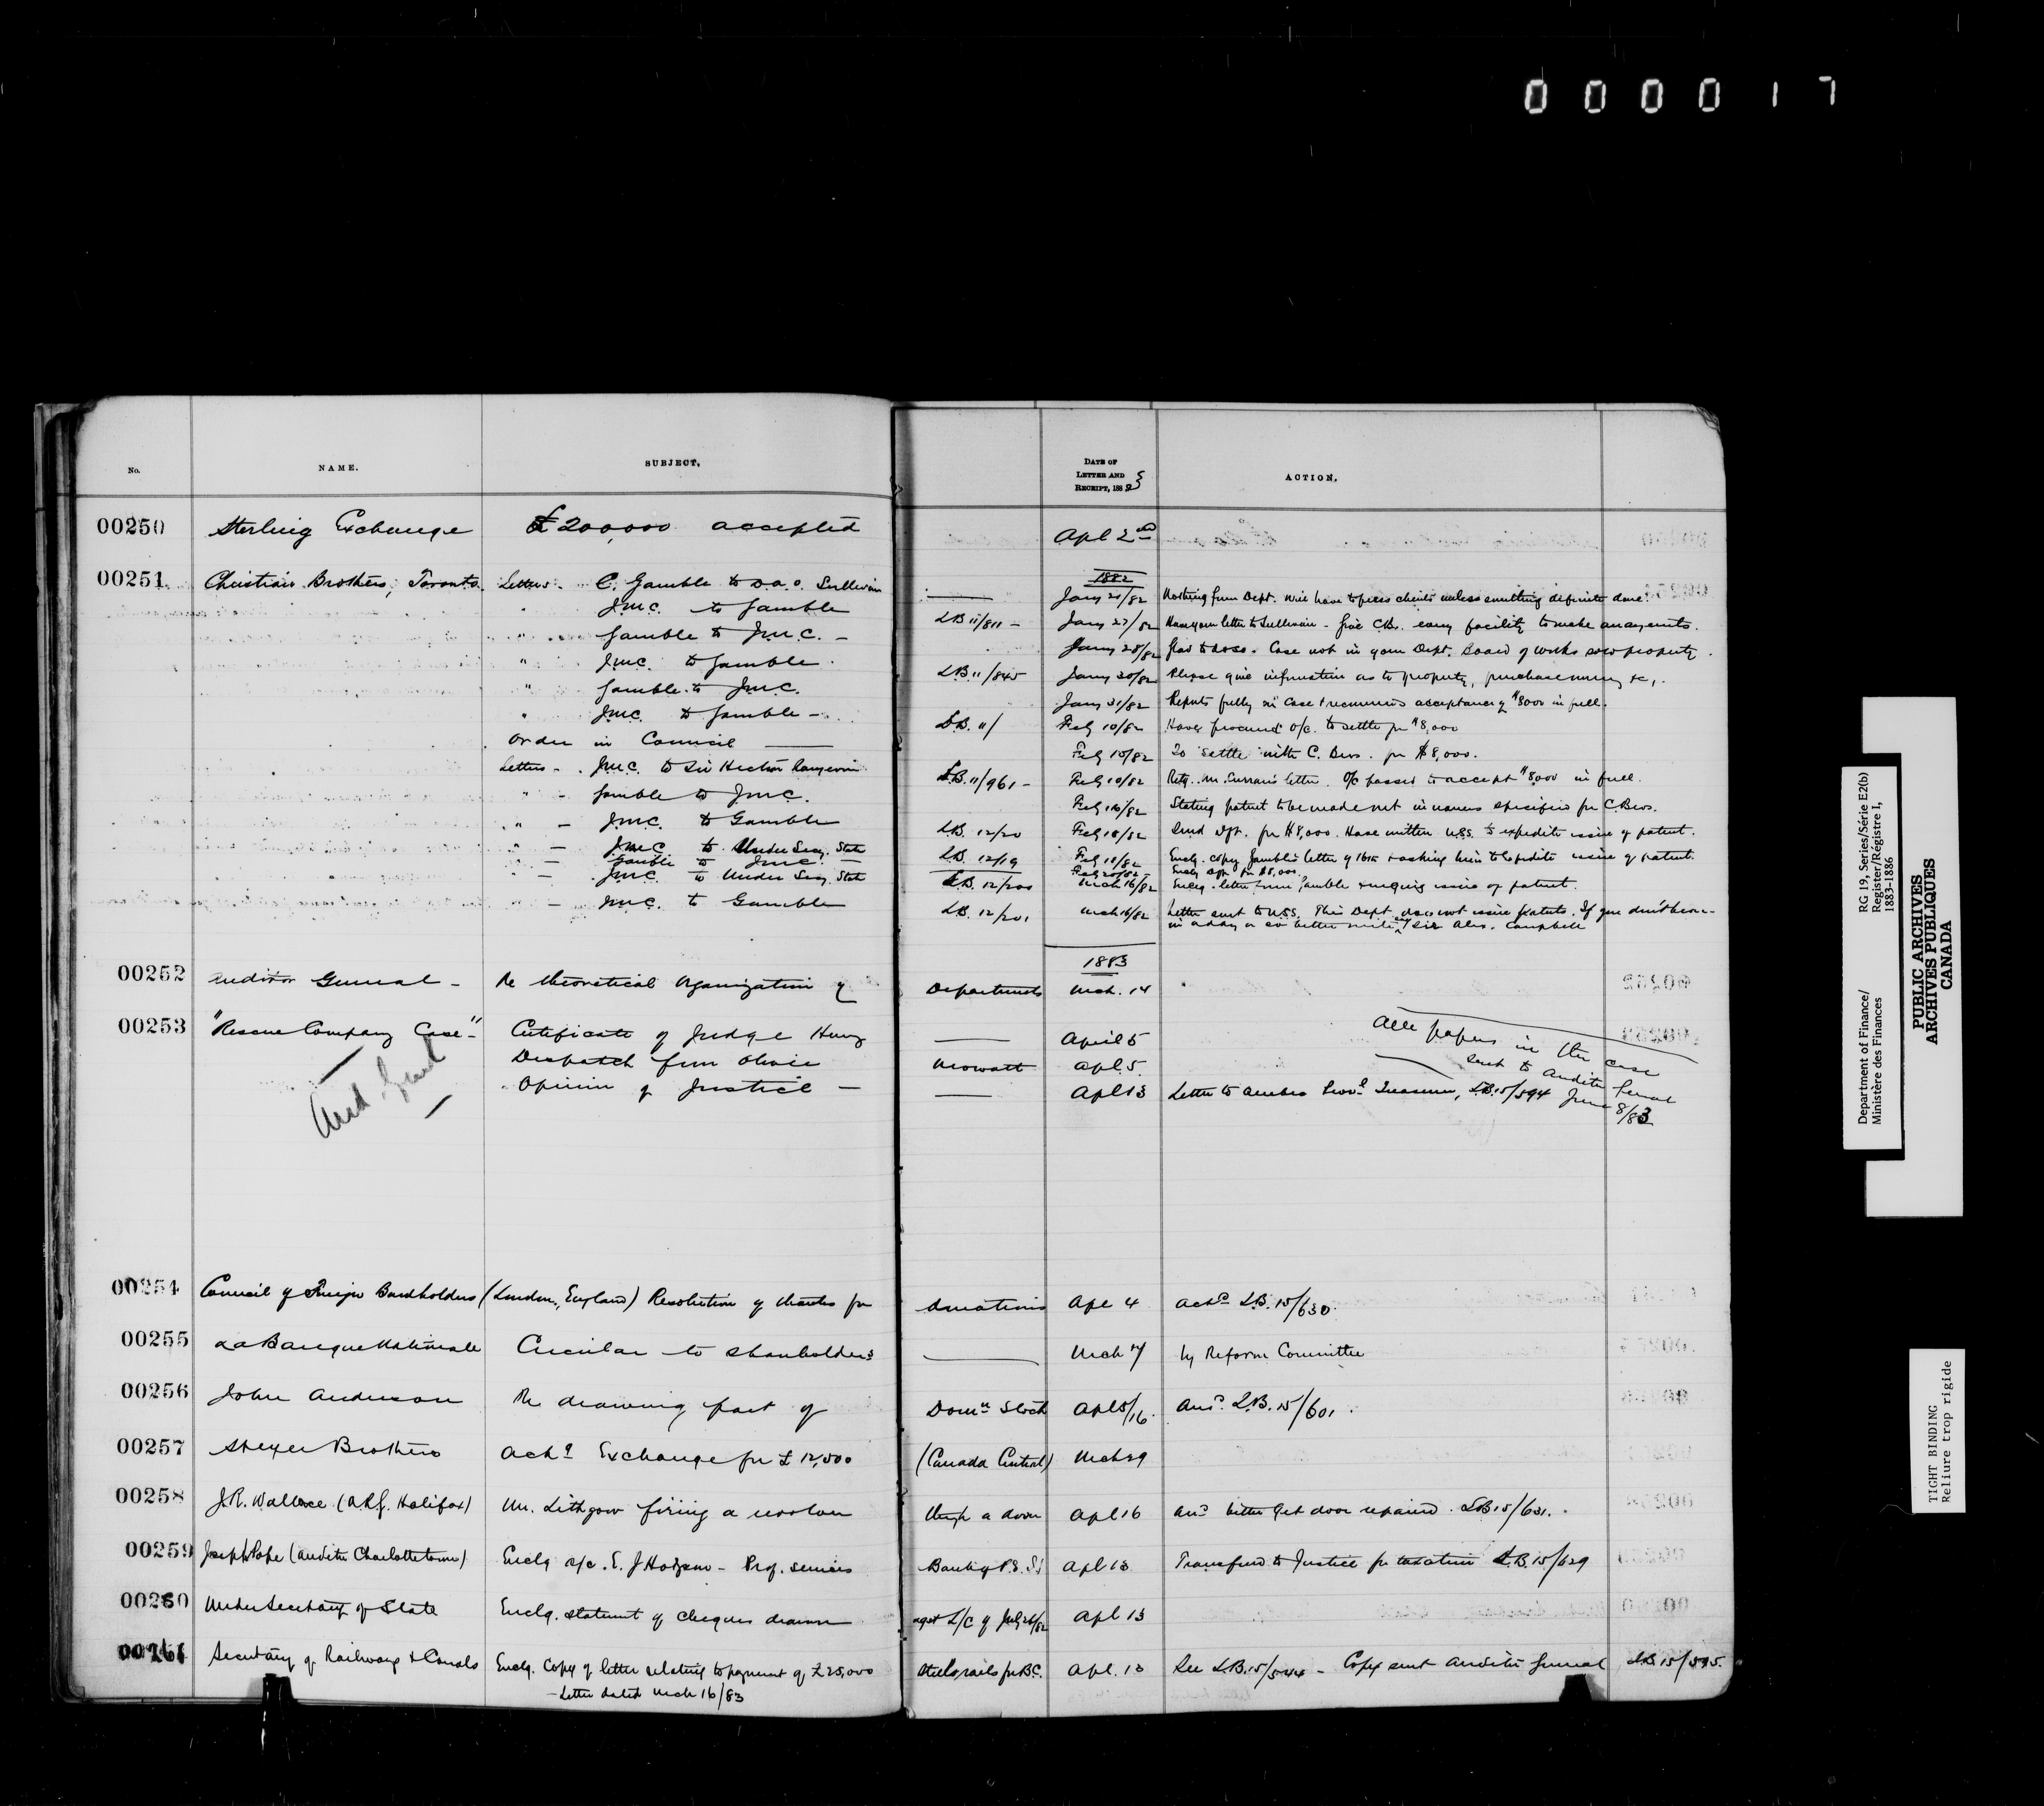 000017
No. NAME. SUBJECT, DATE OF LETTER AND RECEIPT, 1883 ACTION,
00250 Sterling Exchange £200,000 accepted Apl 2nd
1882
00251 Christian Brothers, Toronto. Letters - C. Gamble to D.A.O. Sullivan Jany 21/82 Nothing from Dept. Will have to press clients unless something definite done.
" J.M.C. to Gamble LB 11/811 - Jany 27/82 Have your letter to Sullivan - give C.Bs. every facility to make arrangements.
" Gamble to J.M.C. - Jany 28/82 Glad to do so. Case not in your Dept. Board of Works sold property.
" J.M.C. to Gamble. L.B. 11/845 Jany 30/82 Please give information as to property, purchase money &c,.
" Gamble to J.M.C. Jany 31/82 Reports fully on case & recommends acceptance of $8000 in full.
" J.M.C. to Gamble - L.B. 11/ Feby 10/82 Have procured O/C. to settle for $8,000
Order in Council Feby 10/82 To settle with C. Bros. for $8,000.
Letters - J.M.C. to Sir Hector Langevin L.B. 11/961 - Feby 10/82 Retg. Mr. Curran's letter. O/C passed to accept $8000 in full.
" - Gamble to J.M.C. Feby 16/82 Stating patent to be made out in names specified for C. Bros.
" - J.M.C. to Gamble L.B. 12/20 Feby 18/82 Send dft. for $8,000. Have written U.S.S. to expedite issue of patent.
" - J.M.C. to Under Secy. State L.B. 12/19 Feby 18/82 Enclg. copy Gamble's letter of 16th & asking him to expedite issue of patent.
" - Gamble to J.M.C. - Feb 20/82 - Enclg dft for $8,000.
" - J.M.C. to Under Secy. State L.B. 12/200 Mch 16/82 Enclg. letter from Gamble & urging issue of patent.
" - J.M.C. to Gamble L.B. 12/201 Mch 16/82 Letter sent to U.S.S. This Dept. does not issue patents. If you don't hear -
in a day or so better write Sir Alex. Campbell
1883
00252 Auditor General - Re theoretical organization of Departments Mch. 14
00253 "Rescue Company Case" - Certificate of Judge Henry April 5
Despatch from Olivier Mowatt Apl. 5.
Opinion of Justice - Apl 13 Letter to Quebec Provl Treasurer, L.B. 15/594
All papers in this case
sent to Auditor General
June 8/83
Aud. Genl
00254 Council of Foreign Bondholders (London, England) Resolution of thanks for donations Apl 4 Ackd L.B. 15/630.
00255 La Banque Nationale Circular to shareholders Mch 17 by Reform Committee
00256 John Anderson Re drawing part of Domn Stock Apl 5/16. Ansd. L.B. 15/601.
00257 Speyer Brothers Ackg Exchange for £12,500 (Canada Central) Mch 29
00258 J.R. Wallace (A.R.G. Halifax) Mr. Lithgow firing a revolver through a door Apl 16 Ansd better get door repaired. L.B. 15/631.
00259 Joseph Pope (Auditor Charlottetown) Enclg a/c. E. J Hodgson - Prof. services Bank of P.E.I. Apl 13 Transferred to Justice for taxation L.B. 15/629
00260 Under Secretary of State Enclg. statement of cheques drawn agst L/C of July 26/82 Apl 13
00261 Secretary of Railways & Canals Enclg. Copy of letter relating to payment of £25,000 steel rails for B.C. Apl. 13 See L.B. 15/544 - Copy sent Auditor General L.B 15/595.
- Letter dated Mch 16/83
Department of Finance/
Ministère des Finances
RG 19, Series/Série E2(b)
Register/Registre I,
1883-1886
PUBLIC ARCHIVES
ARCHIVES PUBLIQUES
CANADA
TIGHT BINDING
Reliure trop rigide